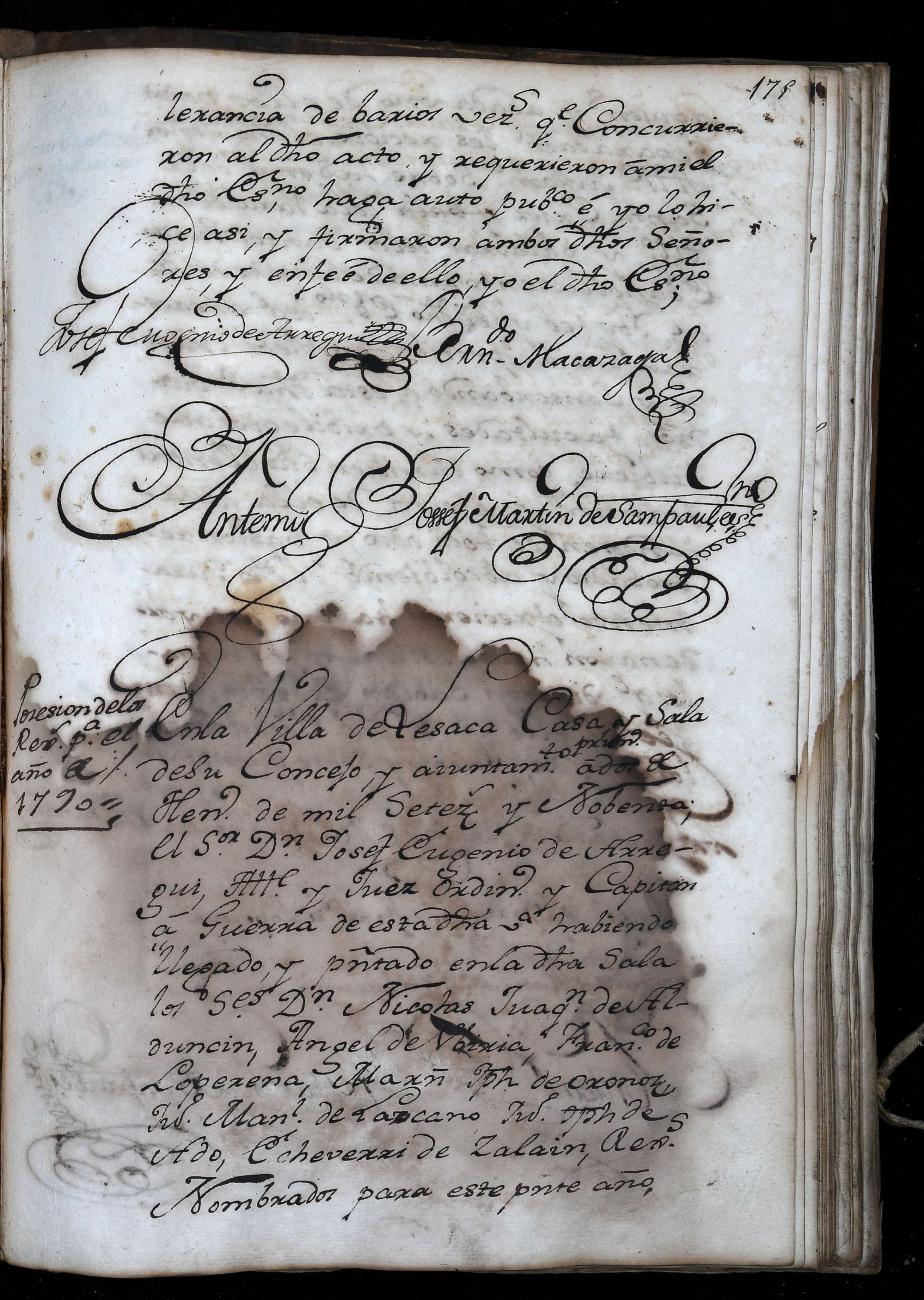 178
leranzia de barios vez.s q.e Concurrie-
ron al dho acto, y requerieron â mi el
dho Es.no, haga auto pub.co é yo lo hi-
ce asi, y firmaron ambos dhos Seño-
res, y en feé de ello, yo el dho Es.no;
Josef Eugenio de Arregui
Bern.do Macazaga
Ante mi Josseph Martin de Sampaul, es.no
Posesion de los
Rex.s p.a el
año de
1790
En la Villa de Lesaca Casa y Sala
de su Concejo y aiuntam.to primº
Hen.º de mil Setez.s y Nobenta;
el S.or D.n Josef Eugenio de Arre-
gui, Al.l y Juez Ordin.º y Capitan
â Guerra de esta dha v.a habiendo
llegado y pñtado en la dha Sala
los S.es D.n Nicolas Juaq.n de Al-
duncin, Angel de Fran.co de
Loperena, Marñ Jph de oronoz,
Ju.º Man.l de Lazcano Ju.º Jph de
Echeverri de Zalain, Rex.s
Nombrados para este pnte año,